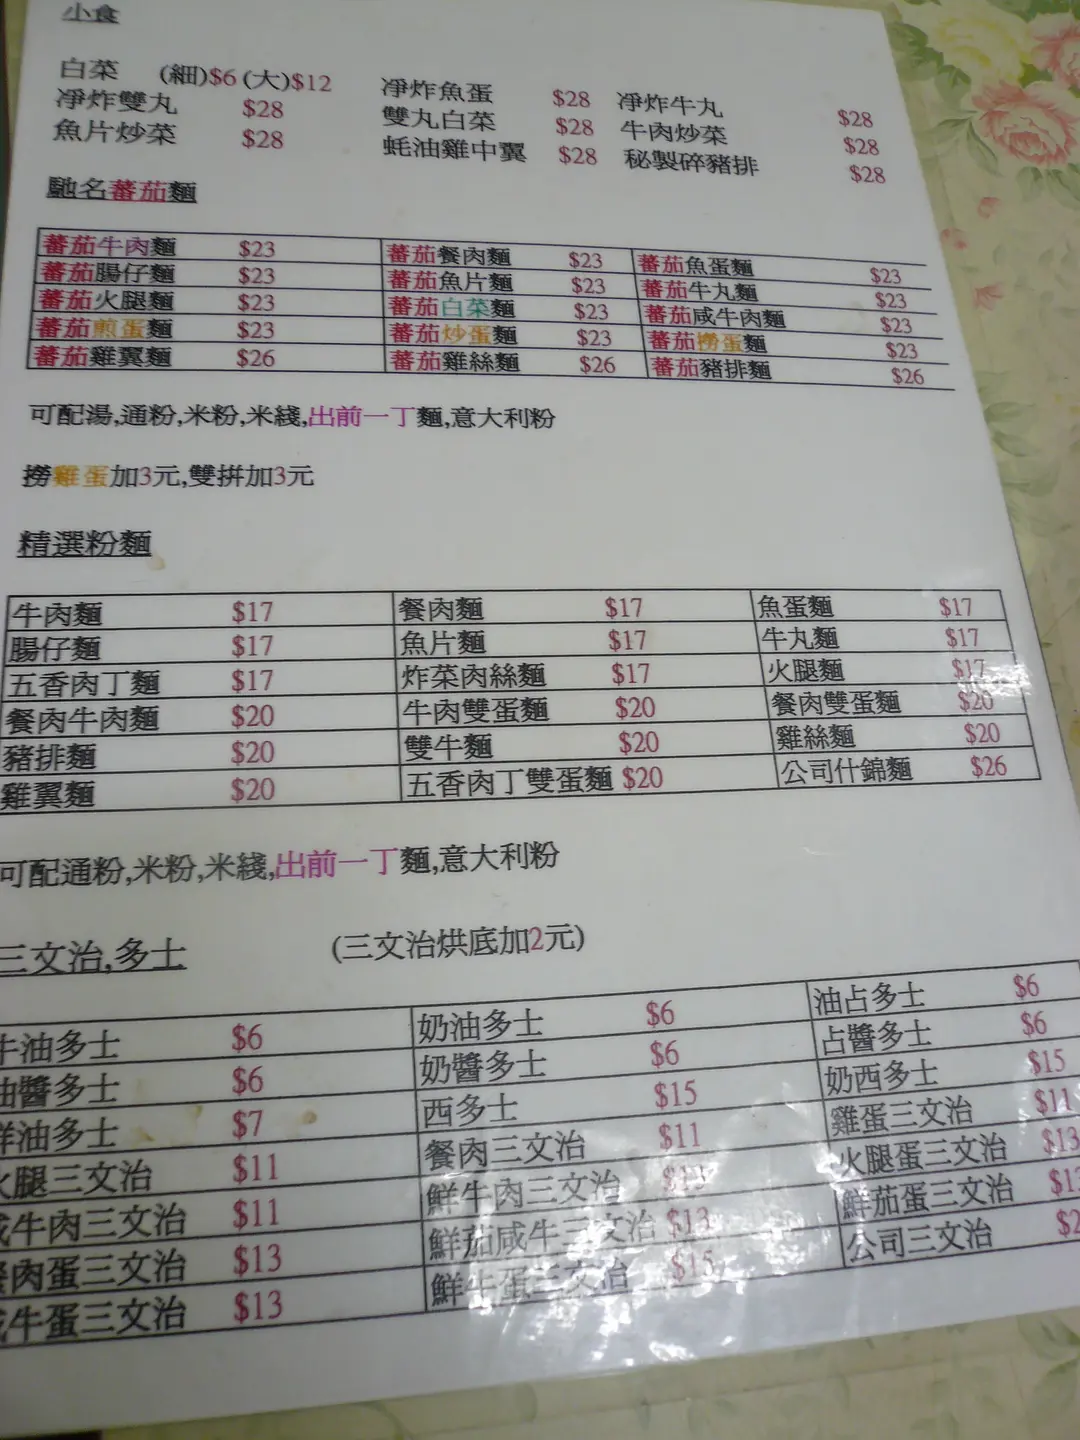 小食
白菜 (細)$6 (大)$12
淨炸魚蛋 $28 淨炸牛丸 $28
淨炸雙丸 $28 雙丸白菜 $28 牛肉炒菜 $28
魚片炒菜 $28 蚝油雞中翼 $28 秘製碎豬排 $28
馳名蕃茄麵
蕃茄牛肉麵 $23 蕃茄餐肉麵 $23 蕃茄魚蛋麵 $23
蕃茄腸仔麵 $23 蕃茄魚片麵 $23 蕃茄牛丸麵 $23
蕃茄火腿麵 $23 蕃茄白菜麵 $23 蕃茄咸牛肉麵 $23
蕃茄煎蛋麵 $23 蕃茄炒蛋麵 $23 蕃茄撈蛋麵 $23
蕃茄雞翼麵 $26 蕃茄雞絲麵 $26 蕃茄豬排麵 $26
可配湯,通粉,米粉,米綫,出前一丁麵,意大利粉
撈雞蛋加3元,雙拼加3元
精選粉麵
牛肉麵 $17 餐肉麵 $17 魚蛋麵 $17
腸仔麵 $17 魚片麵 $17 牛丸麵 $17
五香肉丁麵 $17 炸菜肉絲麵 $17 火腿麵 $17
餐肉牛肉麵 $20 牛肉雙蛋麵 $20 餐肉雙蛋麵 $20
豬排麵 $20 雙牛麵 $20 雞絲麵 $20
雞翼麵 $20 五香肉丁雙蛋麵 $20 公司什錦麵 $26
可配通粉,米粉,米綫,出前一丁麵,意大利粉
三文治,多士 (三文治烘底加2元)
牛油多士 $6 奶油多士 $6 油占多士 $6
油醬多士 $6 奶醬多士 $6 占醬多士 $6
鮮油多士 $7 西多士 $15 奶西多士 $15
火腿三文治 $11 餐肉三文治 $11 雞蛋三文治 $11
咸牛肉三文治 $11 鮮牛肉三文治 $13 火腿蛋三文治 $13
餐肉蛋三文治 $13 鮮茄咸牛三文治 $13 鮮茄蛋三文治
咸牛蛋三文治 $13 鮮牛蛋三文治 $15 公司三文治